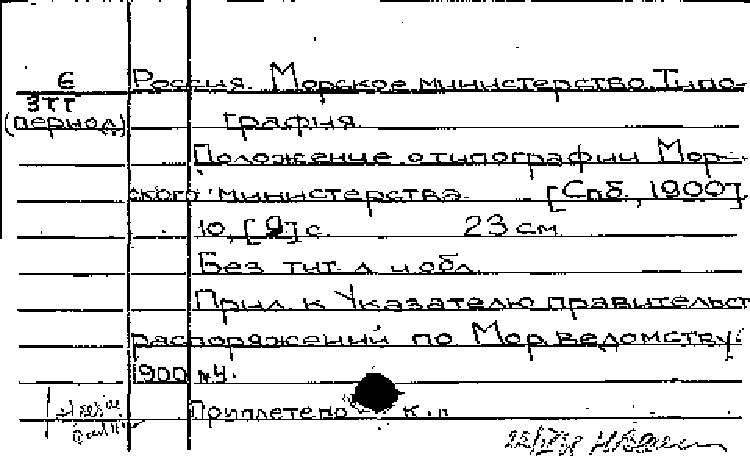 6
3ТГ
(период)
Россия. Морское министерство. Типо-
графия.
Положение о типографии Мор-
ского министерства. [Спб., 1900].
10, [2] с. 23 см.
Без тит. л. и обл.
Прил. к Указателю правительст
распоряжений по Мор. ведомству.
1900 №4.
Приплетено к п